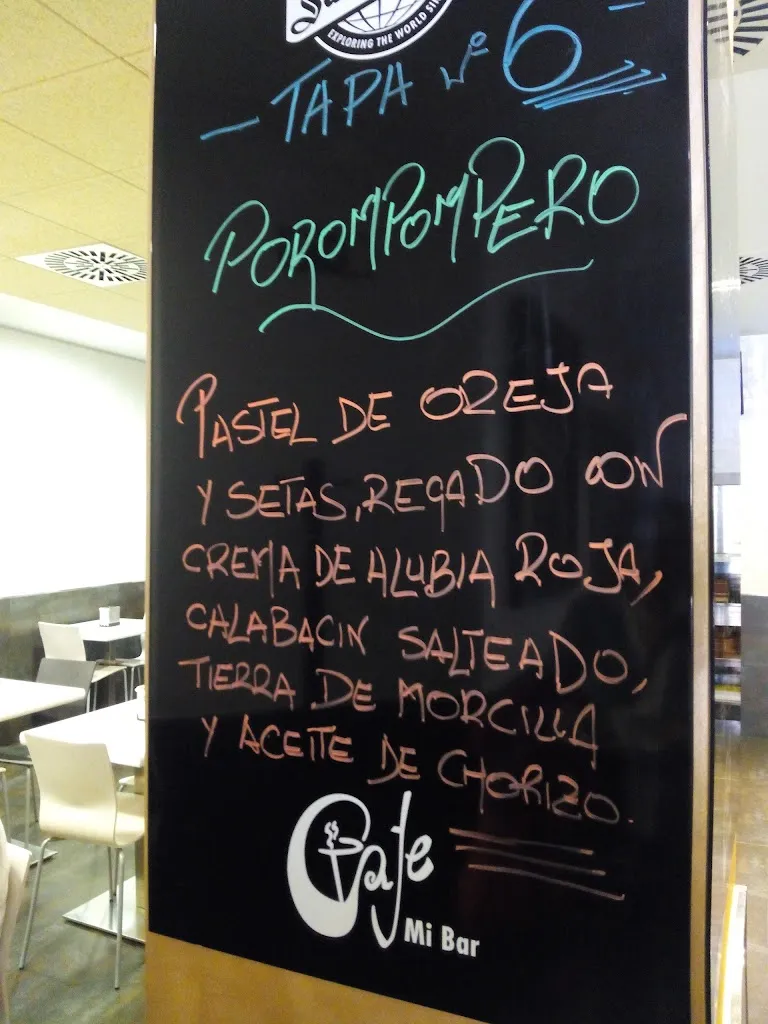 EXPLORING THE WORLD
- TAPA Nº 6 -
POROMPOMPERO
PASTEL DE OREJA
Y SETAS, REGADO CON
CREMA DE ALUBIA ROJA,
CALABACIN SALTEADO,
TIERRA DE MORCILLA
Y ACEITE DE CHORIZO.
Cafe
Mi Bar